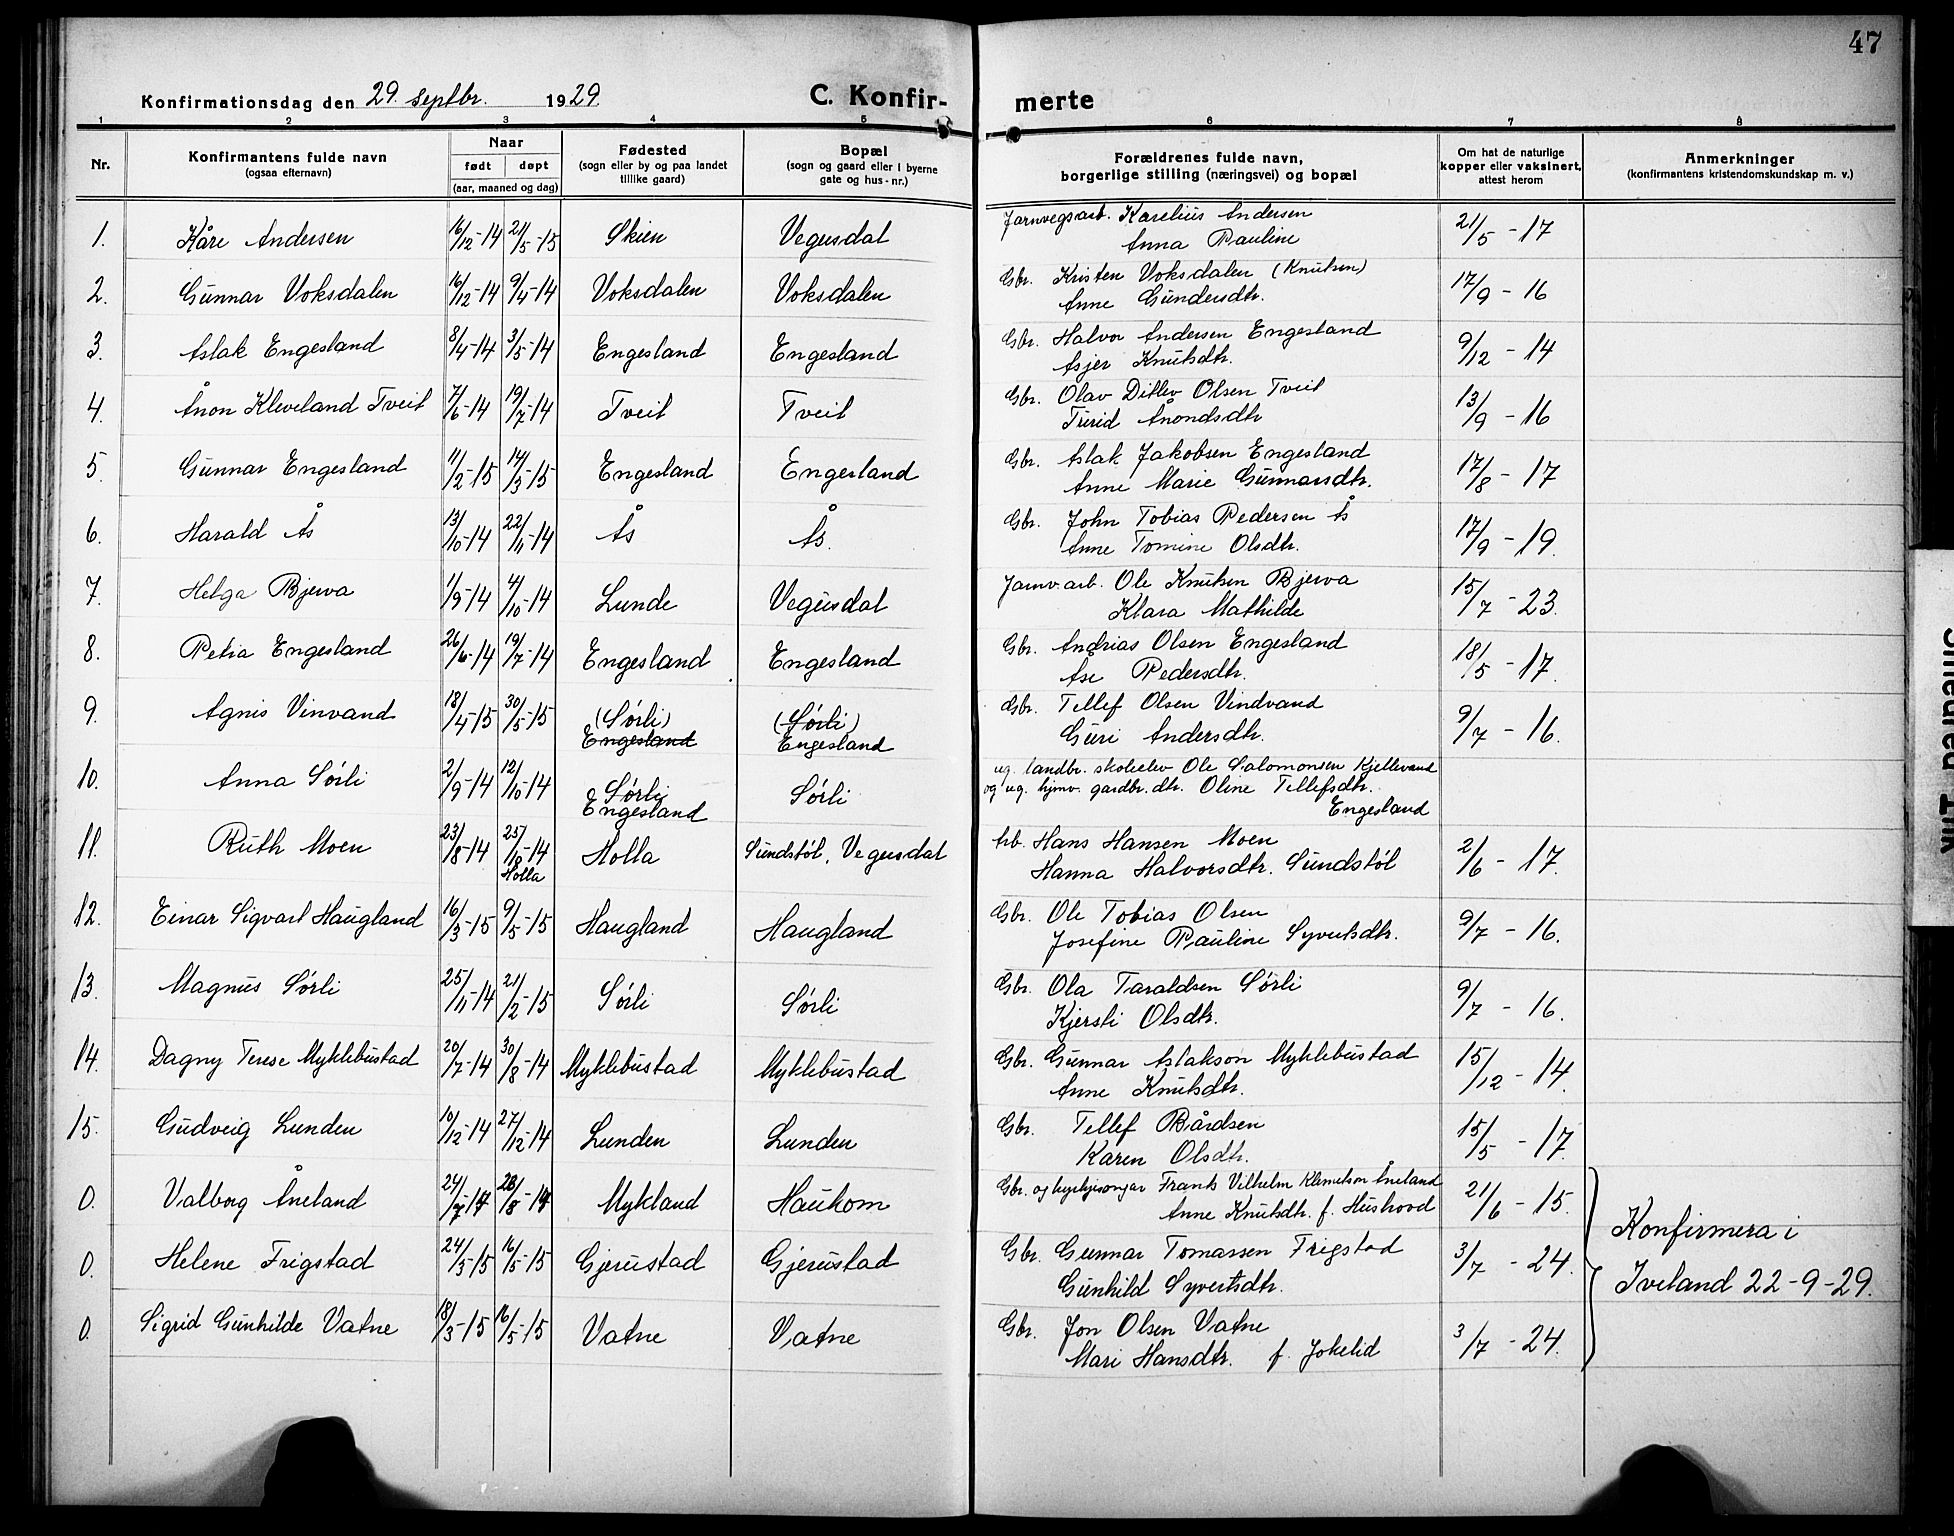 47
Konfirmationsdag den 29. septbr. 1929.
C. Konfirmerte
1 2 3 4 5 6 7 8
Nr. | Konfirmantens fulde navn (ogsaa efternavn) | Naar født døpt (aar, maaned og dag) | Fødested (sogn eller by og paa landet tillike gaard) | Bopæl (sogn og gaard eller i byerne gate og hus-nr.) | Forældrenes fulde navn, borgerlige stilling (næringsvei) og bopæl | Om hat de naturlige kopper eller vaksinert, attest herom | Anmerkninger (konfirmantens kristendomskundskap m. v.)
1. Kåre Andersen 16/12-14 21/5-15 Skien Vegusdal Jarnvegsarb. Karelius Andersen 21/5-17
Anna Pauline
2. Gunnar Voksdalen 16/12-14 9/4-14 Voksdalen Voksdalen Gbr. Kristen Voksdalen (Knutsen) 17/9-16
Anne Gundersdtr.
3. Aslak Engesland 8/4-14 3/5-14 Engesland Engesland Gbr. Halvor Andersen Engesland 9/12-14
Asjer Knutsdtr.
4. Ånon Kleveland Tveit 7/6-14 19/7-14 Tveit Tveit Gbr. Olav Ditlev Olsen Tveit 13/9-16
Turid Ånondsdtr
5. Gunnar Engesland 11/2-15 14/3-15 Engesland Engesland Gbr. Aslak Jakobsen Engesland 17/8-17
Anne Marie Gunnarsdtr.
6. Harald Ås 13/10-14 22/11-14 Ås Ås. Gbr. John Tobias Pedersen Ås 17/9-19.
Anne Tomine Olsdtr.
7. Helga Bjerva 1/9-14 4/10-14 Lunde Vegusdal Jarnv.arb. Ole Knutsen Bjerva 15/7-23.
Klara Mathilde
8. Petra Engesland 26/6-14 19/7-14 Engesland Engesland Gbr. Andrias Olsen Engesland 18/5-17.
Åse Pedersdtr.
9. Agnis Vinvand 18/4-15 30/5-15 (Sørli) (Sørli) Gbr. Tellef Olsen Vindvand 9/7-16.
Engesland Engesland Guri Andersdtr.
10. Anna Sørli 2/9-14 12/10-14 Sørli Sørli ug. landbr. skoleelev Ole Salomonsen Kjellevand
Engesland og ug. hjmv. gardbr. dtr. Oline Tellefsdtr.
Engesland
11. Ruth Moen 23/8-14 25/18-14 Holla Sundstøl, Vegusdal Arb. Hans Hansen Moen 2/6-17.
Holla Hanna Halvorsdtr. Sundstøl
12. Einar Sigvart Haugland 16/3-15 9/5-15 Haugland Haugland Gbr. Ole Tobias Olsen 9/7-16.
Josefine Pauline Syvertsdtr.
13. Magnus Sørli 25/11-14 21/2-15 Sørli Sørli Gbr. Ola Taraldsen Sørli 9/7-16.
Kjersti Olsdtr.
14. Dagny Terese Myklebustad 20/7-14 30/8-14 Myklebustad Myklebustad Gbr. Gunnar Aslakson Myklebustad 15/12-14.
Anne Knutsdtr.
15. Gudveig Lunden 10/12-14 27/12-14 Lunden Lunden Gbr. Tellef Bårdsen 15/5-17.
Karen Olsdtr.
0. Valborg Åneland 24/7-14 23/8-14 Mykland Haukom Gbr. og kyrkjesongar Frants Vilhelm Klemetson Åneland 21/6-15.
Anne Knutsdtr. f. Hushovd
0. Helene Frigstad 24/3-15 16/5-15 Gjerustad Gjerustad Gbr. Gunnar Tomassen Frigstad 3/7-24.
Gunhild Syvertsdtr.
0. Sigrid Gunhilde Vatne 18/3-15 16/5-15 Vatne Vatne Gbr. Jon Olsen Vatne 3/7-24.
Mari Hansdtr. f. Jokelid
Konfirmera i
Iveland 22-9-29.